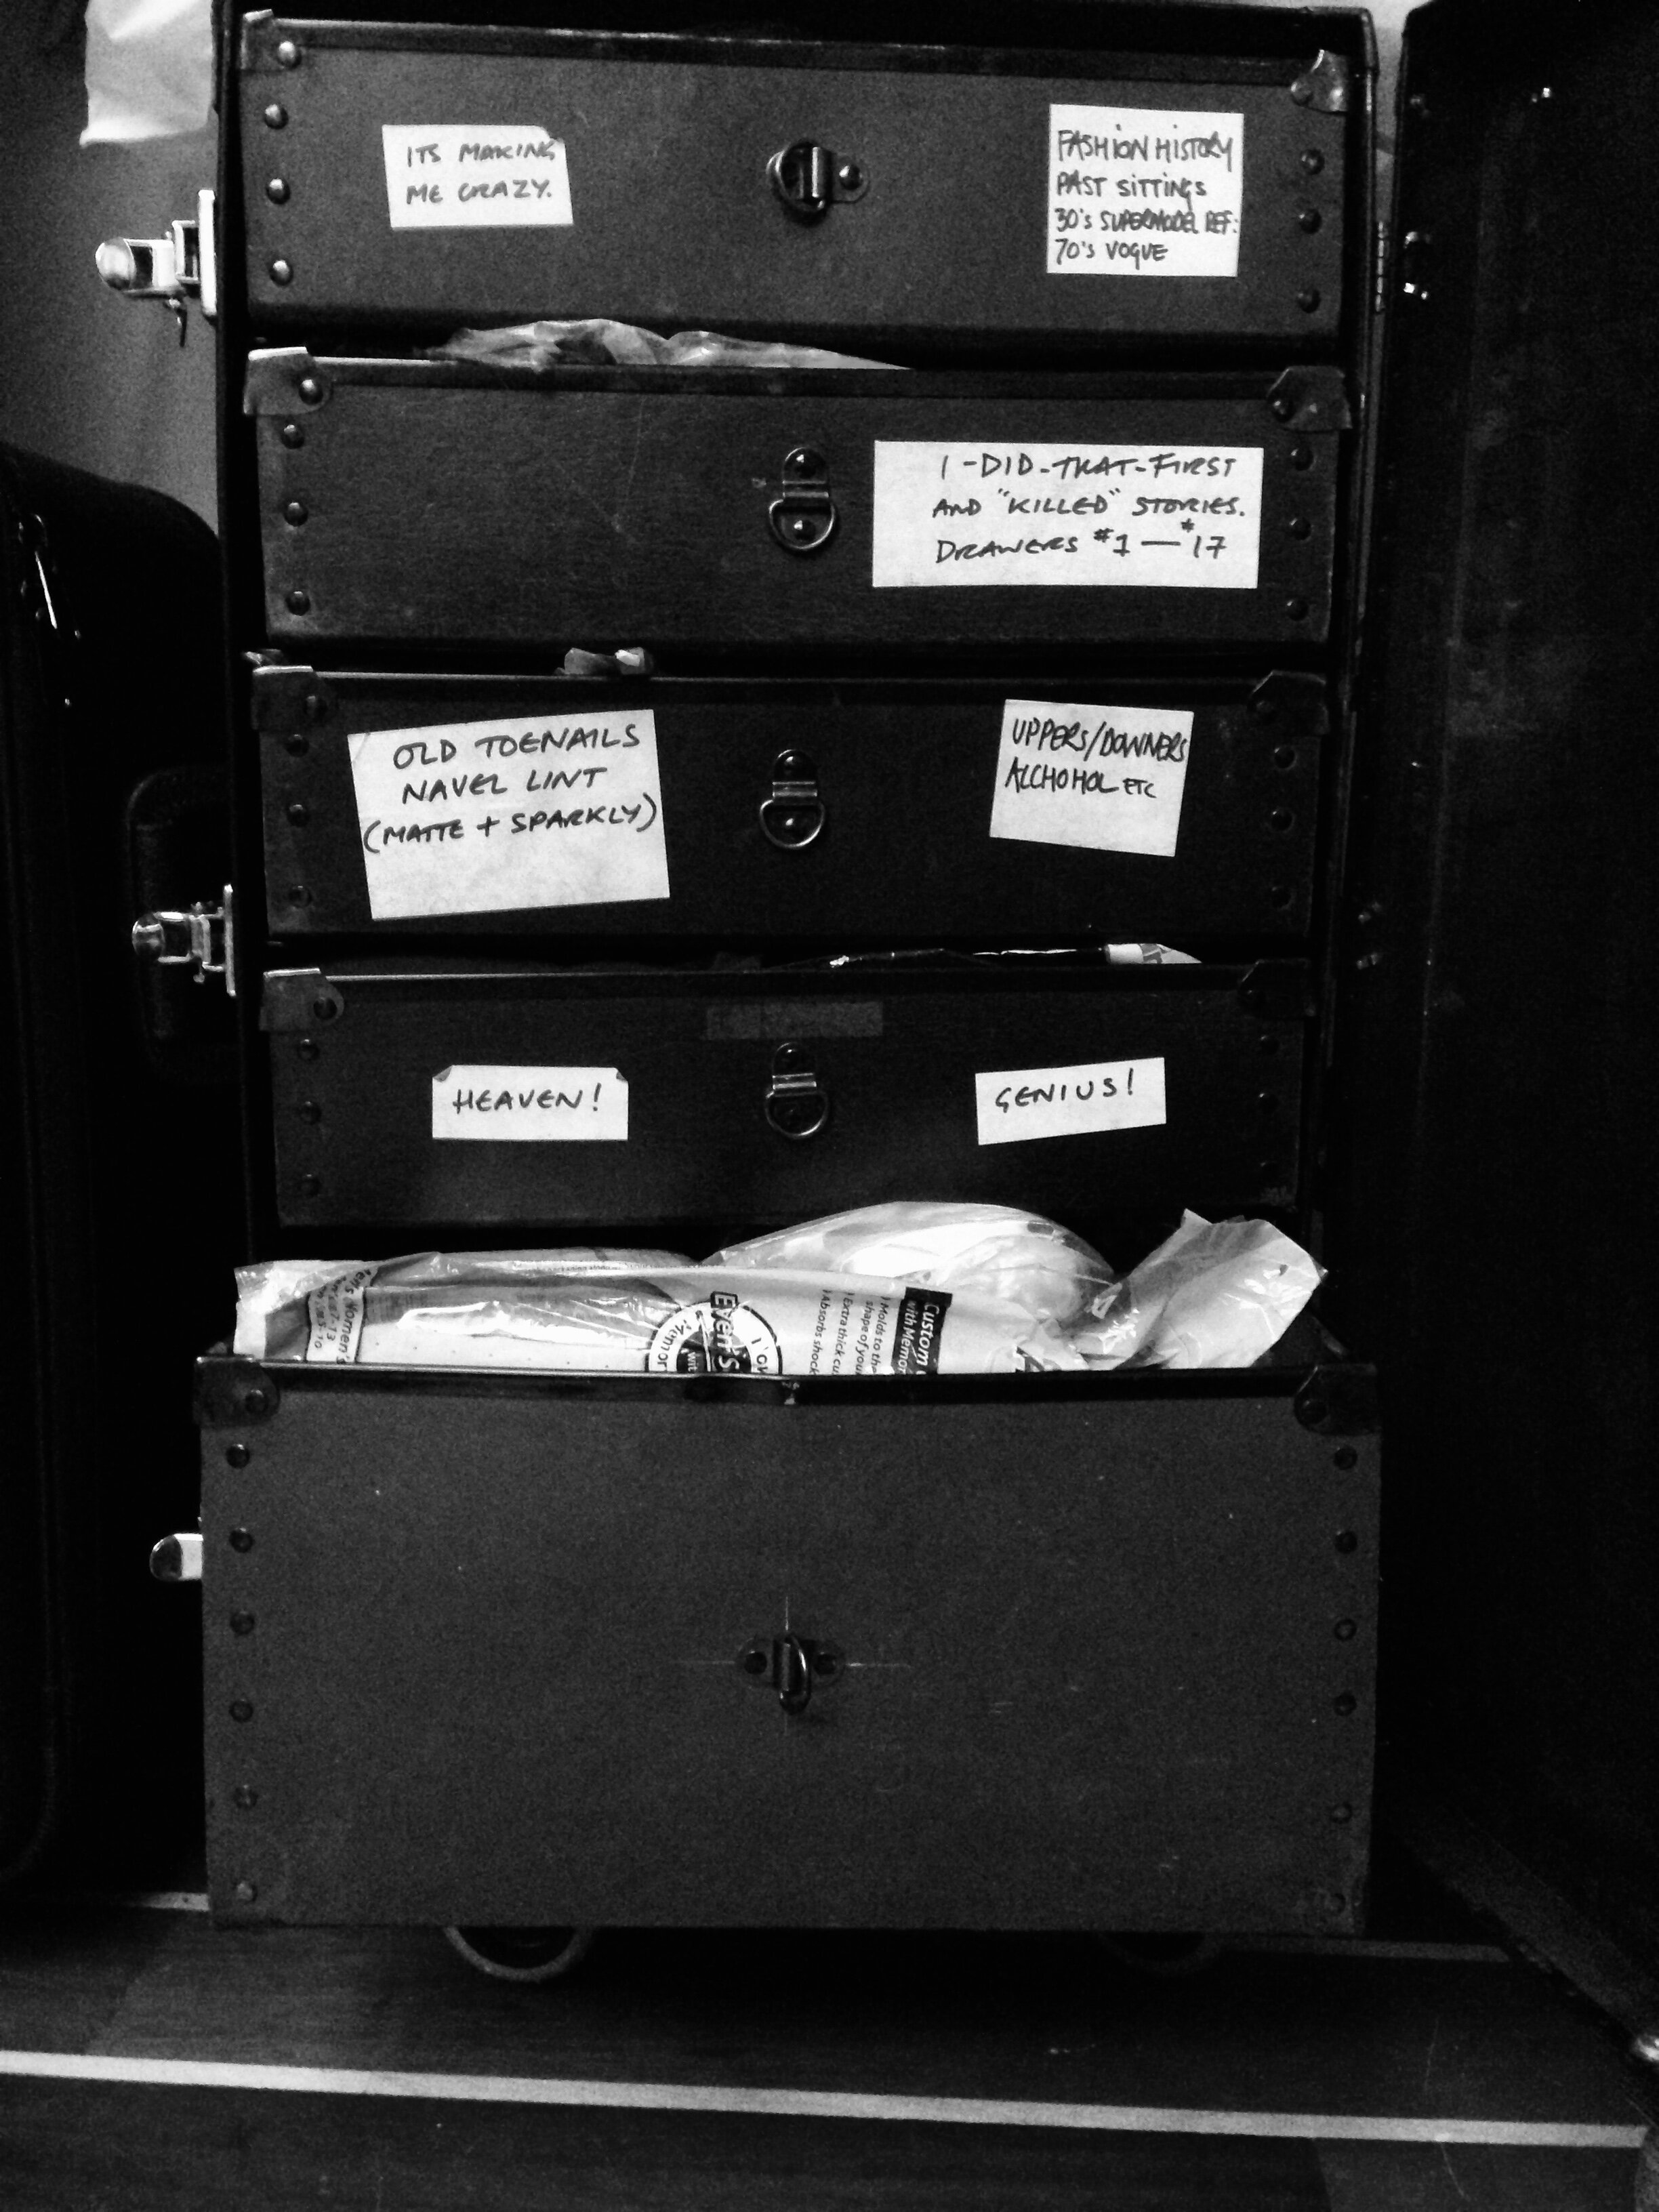 ITS MAKING
ME CRAZY.
FASHION HISTORY
PAST SITTINGS
30's SUPERMODEL REF:
70's VOGUE
I-DID-THAT-FIRST
AND "KILLED" STORIES.
DRAWERS #1 — #17
OLD TOENAILS
NAVEL LINT
(MATTE + SPARKLY)
UPPERS/DOWNERS
ALCHOHOL ETC
HEAVEN!
GENIUS!
Men's Women's
Custom
with Memor
Molds to the
shape of your
Extra thick cu
Absorbs shock
Memor
with